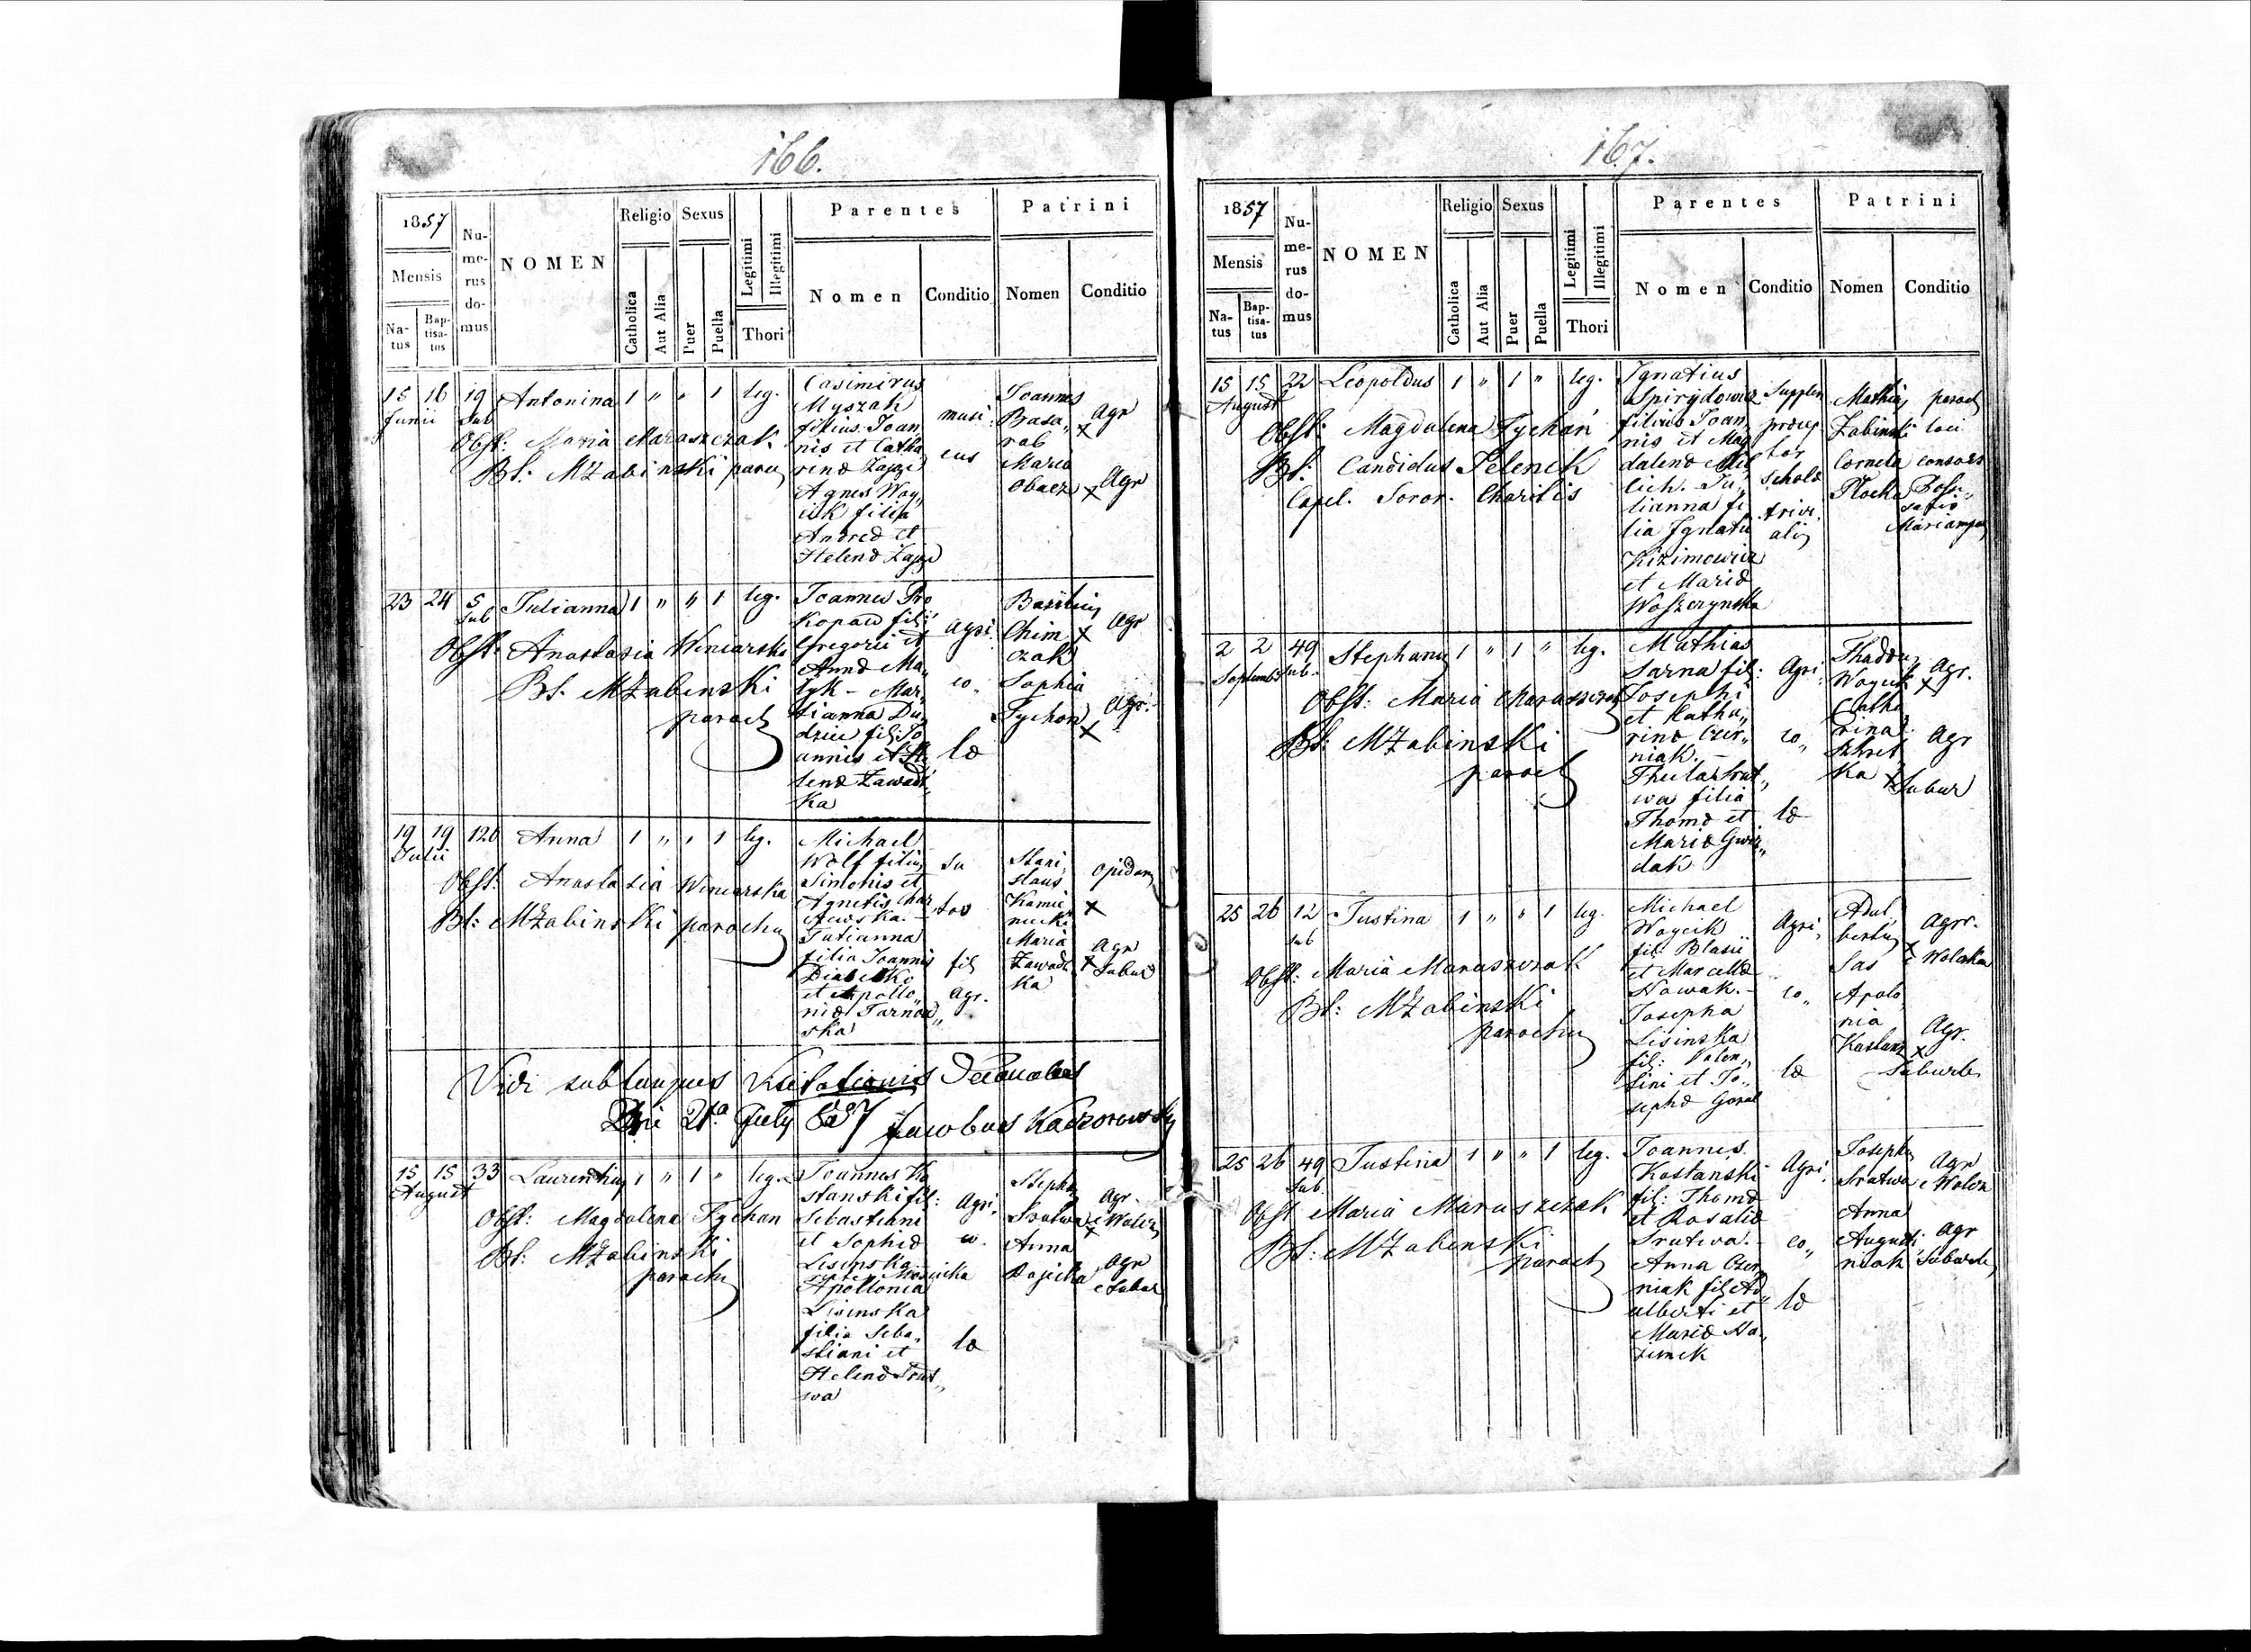 166.
1857
Mensis
Na-
tus
Bap-
tisa-
tus
Nu-
me-
rus
do-
mus
NOMEN
Religio
Catholica
Aut Alia
Sexus
Puer
Puella
Legitimi
Illegitimi
Thori
Parentes
Nomen
Conditio
Patrini
Nomen
Conditio
15 16 19 Antonina 1 " " 1 leg.
Junii Sub
Obst: Maria Maraszczak
Bt: MŻabinski paroch
Casimirus
Myszak
filius Joan
nis et Catha
rinæ
Agnes Woy„
cik filia
Andreæ et
Helenæ
musi
cus
Joannes
Basa„
rab
Maria
Agr
x
Agr
x
23 24 5 Julianna 1 " " 1 leg.
Sub
Obst: Anastasia Winiarska
Bt. MŻabinski
paroch
Joannes Pro
kopaw fili
Gregorii et
Annæ Ma„
tyk - Mar„
tianna Du„
dzic fil: Jo
annis et He
lenæ Zawadz
ka
Agri
co„
læ
Basilius
Chim
czak
Sophia
Tychon
Agr
x
Agr.
x
19 19 126 Anna 1 " " 1 leg.
Julii
Obst: Anastasia Winiarska
Bt: MŻabinski parochus
Michael
Wolf filius
Simonis et
Agnetis
Tatianna
filia Joannis
et Apollo„
niæ Tarnow„
ska
Su
tor
fil
Agr.
Stani
slaus
Kamie
niecki
Maria
Zawadz
ka
Opidan
x
Agr
x Subur
Vidi sub tempus Visitationis Decanalis
Die 21a July 857 Jacobus Kaczorowski
15 15 33 Laurentius 1 " 1 " leg.
August
Obst: Magdalena Tychan
Bt: MŻabinski
parochus
Joannes Ko
stanski fil:
Sebastiani
et Sophiæ
Lisinska
Apollonia
Lisinska
filia Seba„
stiani et
Helenæ Srut„
wa
Agri
co.
læ
Stephan
Srutwa
Anna
Agr.
x
Agr
Subur
167.
1857
Mensis
Na-
tus
Bap-
tisa-
tus
Nu-
me-
rus
do-
mus
NOMEN
Religio
Catholica
Aut Alia
Sexus
Puer
Puella
Legitimi
Illegitimi
Thori
Parentes
Nomen
Conditio
Patrini
Nomen
Conditio
15 15 22 Leopoldus 1 " 1 " leg.
August
Obst: Magdalena Tychan
Bt: Candidus Jelenek
Capel. Soror. Charitis
Ignatius
Spirydowicz
filius Joan
nis et Mag
dalenæ Mil
lich. Ju„
lianna fi
lia Ignatii
Kizimowicz
et Mariæ
Woszczynska
Supplen
præcep
tor
Scholæ
trivi
alis
Mathias
Żabinski
Cornela
Plocka
paroch
loci
consors
Mariampol
2 2 49 Stephanus 1 " 1 " leg.
Septembr Sub.
Obst: Maria Maraszczak
Bt: MŻabinski
paroch
Mathias
Sarna fil:
Josephi
et Catha„
rinæ Czer„
niak. -
Thecla Srut„
wa filia
Thomæ et
Mariæ Gwiz„
dak
Agri
co„
læ
Thaddæus
Woycik
Catha
rina
ka
Agr.
x
Agr
x Subur
25 26 12 Justina 1 " " 1 leg.
Sub
Obst: Maria Maraszczak
Bt: MŻabinski
parochus
Michael
Woycik
fil: Blasii
et Marcellæ
Nowak. -
Josepha
Lisinska
fil: Valen„
tini et Jo„
sephæ Goral
Agri
co„
læ
Adal„
bertus
Sas
Apolo
nia
Agr.
x
Agr.
x
Suburb
25 26 49 Justina 1 " " 1 leg.
Sub.
Obst Maria Maraszczak
Bt: MŻabinski
paroch
Joannes
Kostanski
fil: Thomæ
et Rosaliæ
Srutwa. -
Anna Czer
niak fil Ad„
alberti et
Mariæ
Agri
co„
læ
Josephus
Srutwa
Anna
Augusti
niak
Agr
Agr
Suburb